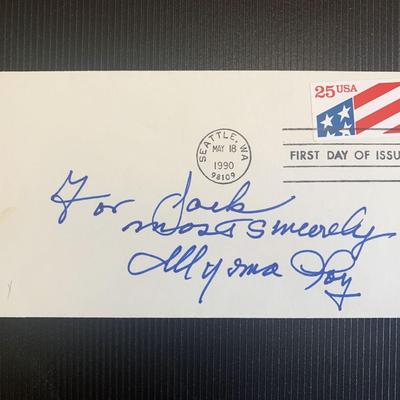 25 USA
SEATTLE, WA
MAY 18
1990
98109
FIRST DAY OF ISSU
For Jack
most sincerely
Myrna Loy